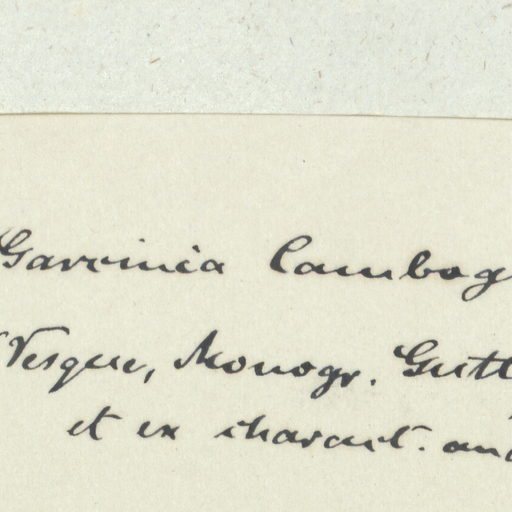 Garcinia Cambog
Vesque, Monogr. Gutt
et ex charact. ana